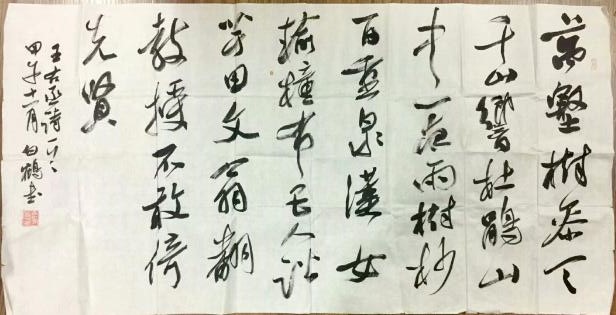 萬壑樹參天
千山響杜鵑山
中一夜雨樹杪
百重泉漢女
輸橦布巴人訟
芋田文翁翻
教授不敢倚
先賢
王右丞詩一首
甲午十一月白鶴書